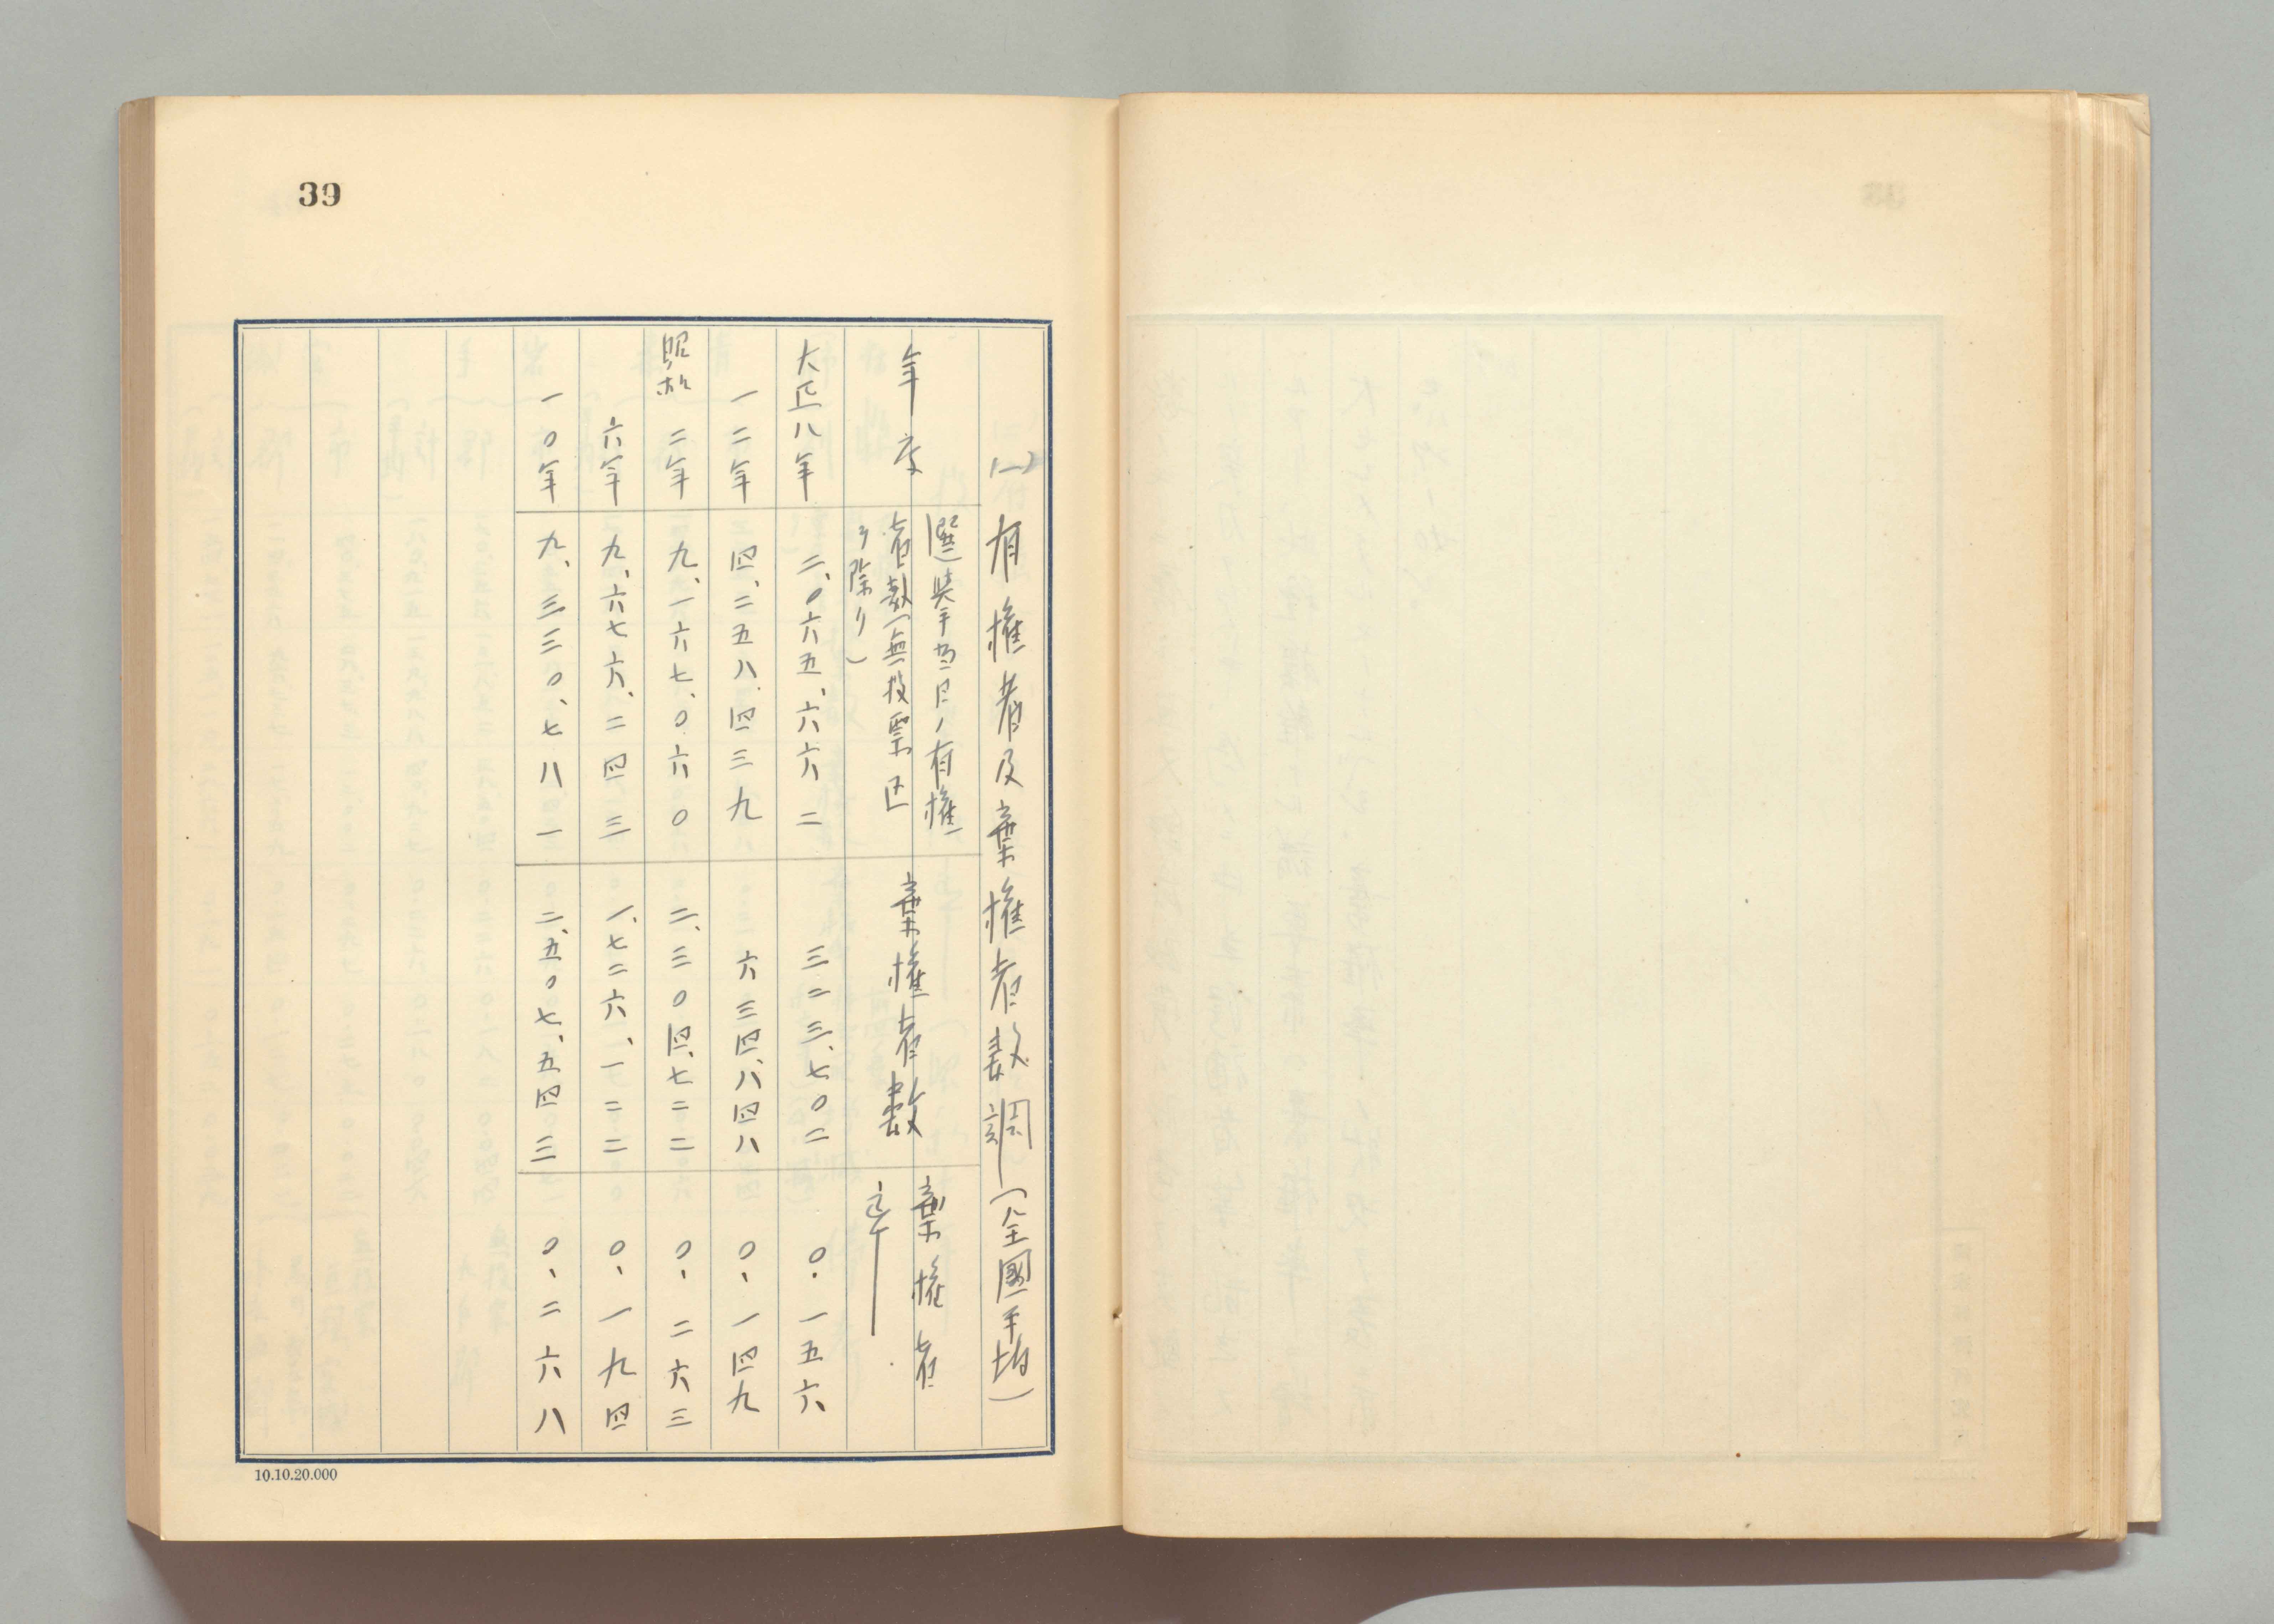 39
(二) 有権者及棄権者数調(全國平均)
年度
選挙当日ノ有権
者数(無投票区
ヲ除ク)
棄権者数
棄権者
率
大正八年 二、〇六五、六六二 三二三、七〇二 〇.一五六
一二年 四、二五八、四三九 六三四、八四八 〇、一四九
昭和二年 九、一六七、〇六〇 二、三〇四、七二二 〇、二六三
六年 九、六七六、二四三 一、七二六、一二二 〇、一九四
一〇年 九、三三〇、七八一 二、五〇七、五四三 〇、二六八
10.10.20.000